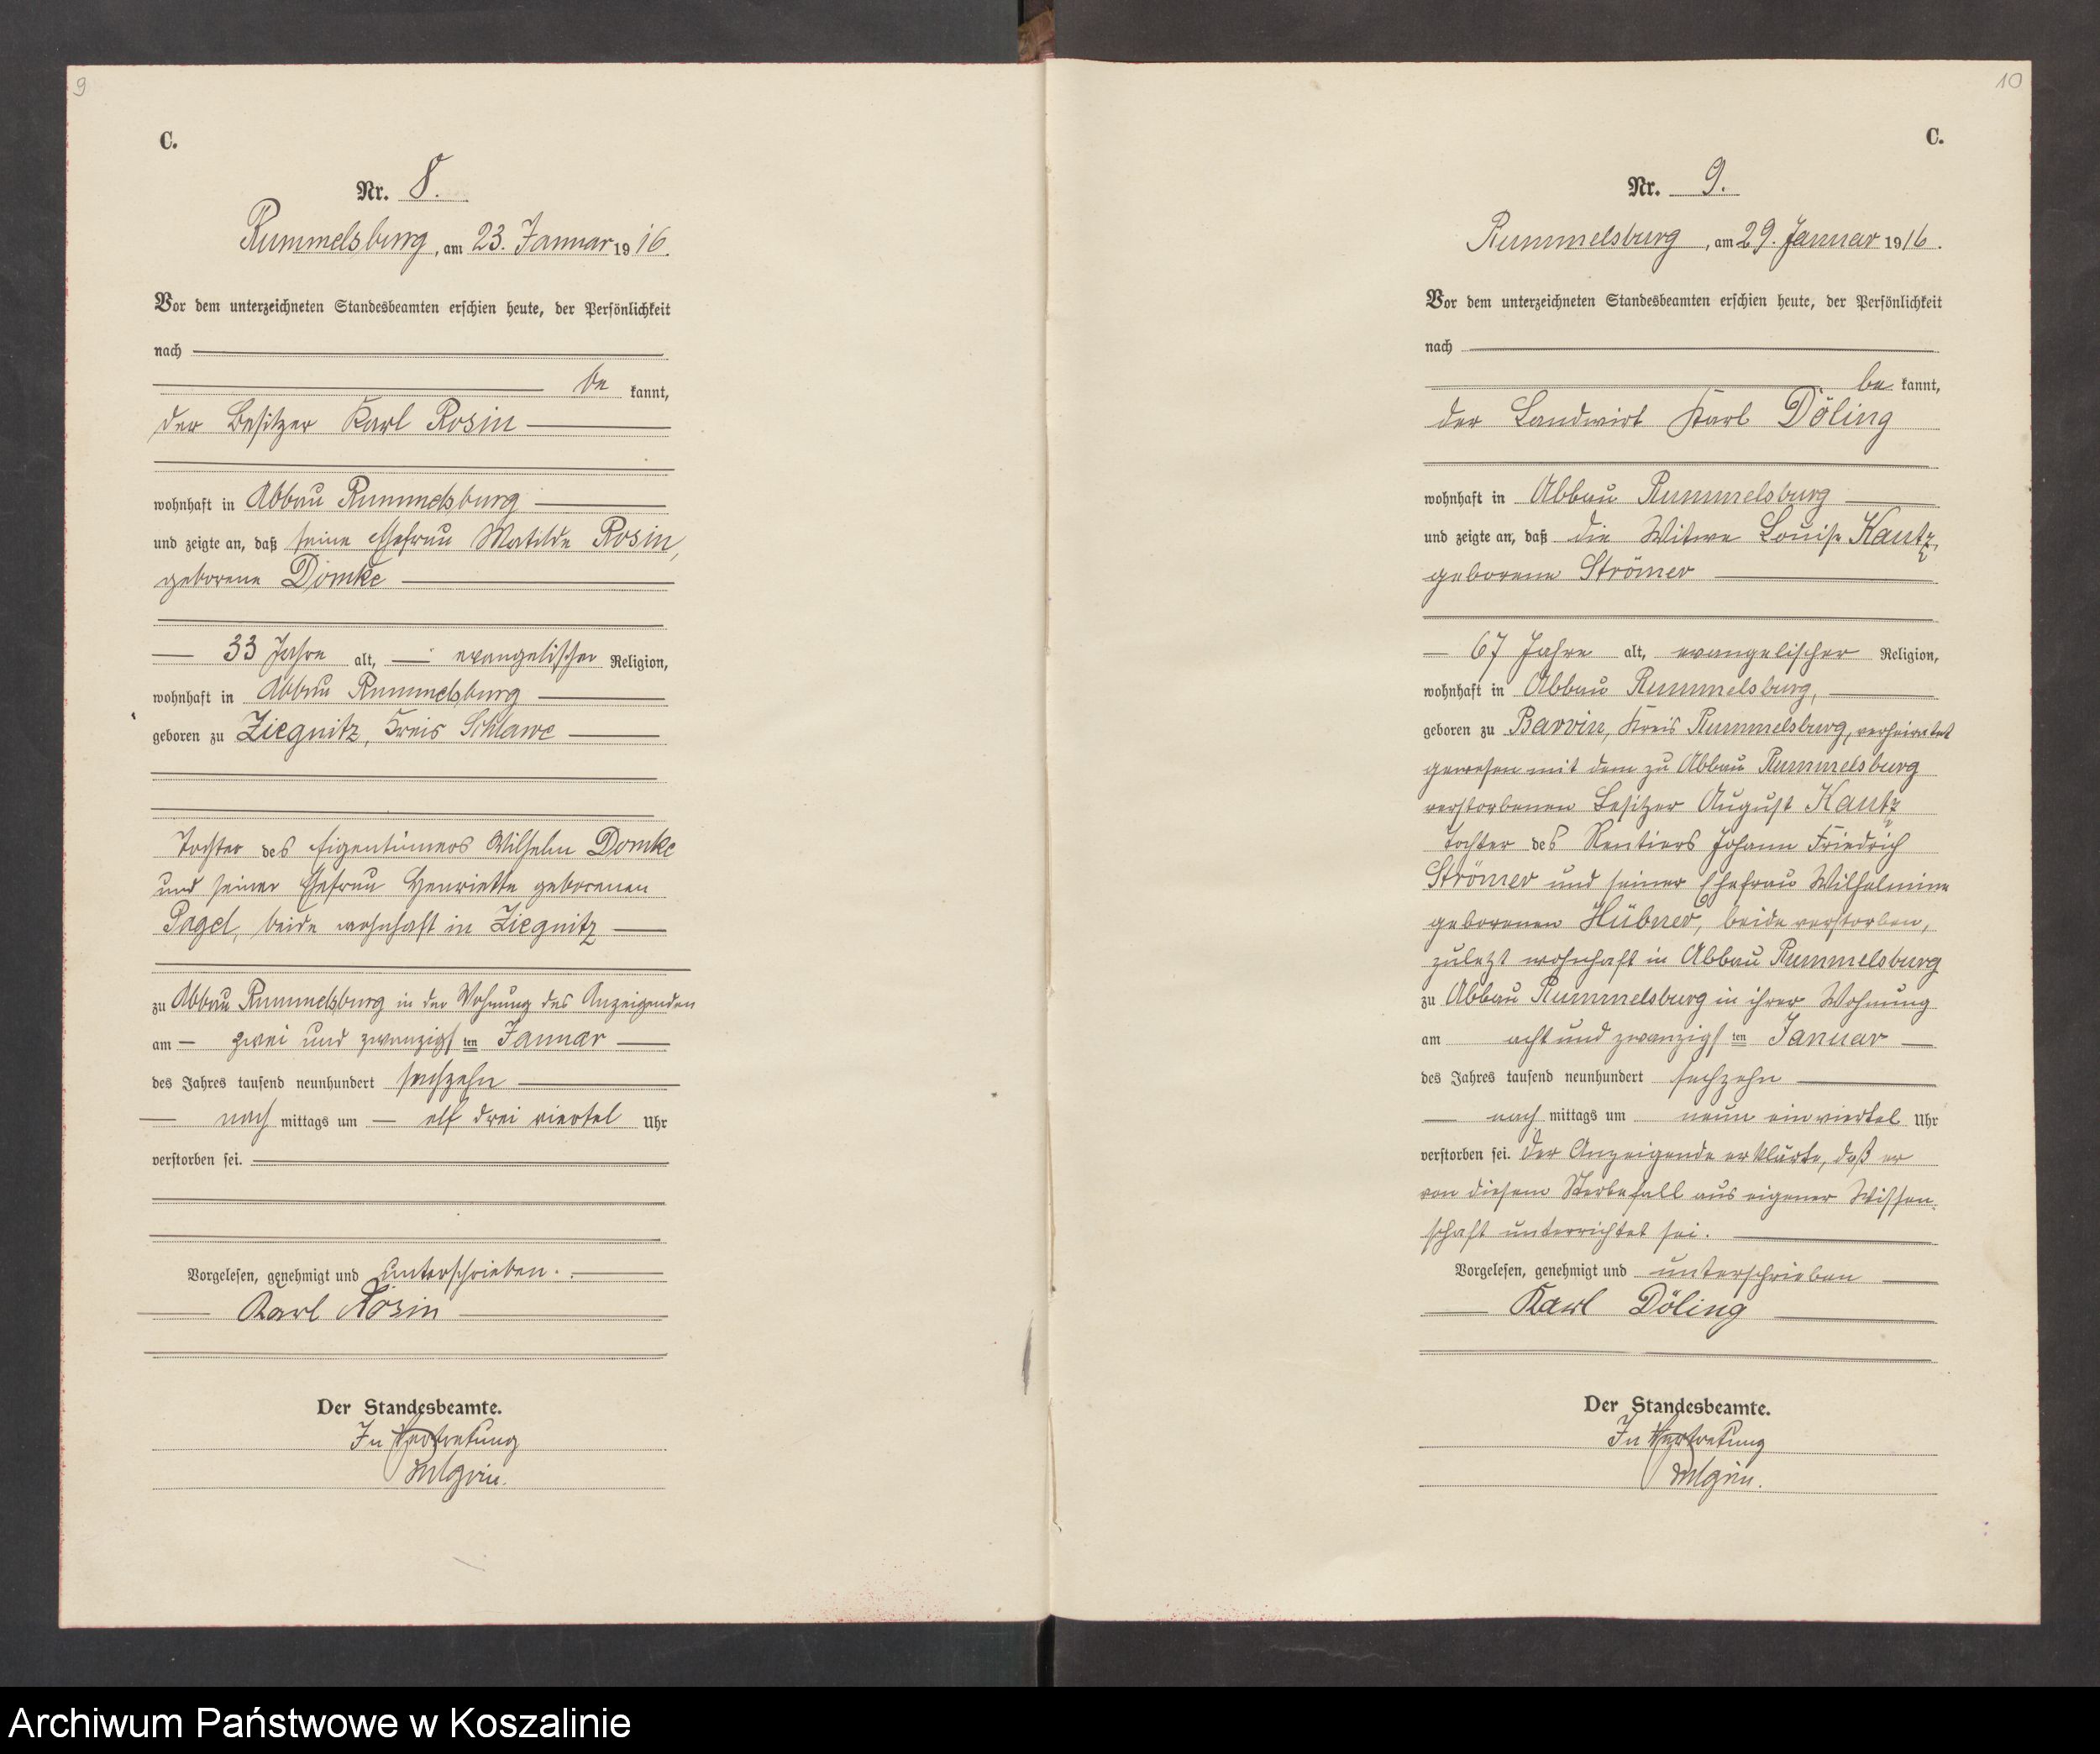 9
C.
Nr. 8.
Rummelsburg, am 23. Januar 1916.
Vor dem unterzeichneten Standesbeamten erschien heute, der Persönlichkeit
nach
be kannt,
der Besitzer Karl Rosin
wohnhaft in Abbau Rummelsburg
und zeigte an, daß seine Ehefrau Matilde Rosin,
geborene Domke
33 Jahre alt, evangelischer Religion,
wohnhaft in Abbau Rummelsburg
geboren zu Ziegnitz, Kreis Schlawe
Tochter des Eigentümers Wilhelm Domke
und seiner Ehefrau Henriette geborenen
Pagel, beide wohnhaft in Ziegnitz
zu Abbau Rummelsburg in der Wohnung des Anzeigenden
am zwei und zwanzigsten Januar
des Jahres tausend neunhundert sechzehn
nach mittags um elf drei viertel Uhr
verstorben sei.
Vorgelesen, genehmigt und unterschrieben.
Karl Rosin
Der Standesbeamte.
In Vertretung
10
C.
Nr. 9.
Rummelsburg, am 29. Januar 1916.
Vor dem unterzeichneten Standesbeamten erschien heute, der Persönlichkeit
nach
be kannt,
der Landwirt Karl Döling
wohnhaft in Abbau Rummelsburg
und zeigte an, daß die Witwe Louise Kautz,
geborene Strömer
67 Jahre alt, evangelischer Religion,
wohnhaft in Abbau Rummelsburg,
geboren zu Barvin, Kreis Rummelsburg, verheiratet
gewesen mit dem zu Abbau Rummelsburg
verstorbenen Besitzer August Kautz
Tochter des Rentiers Johann Friedrich
Strömer und seiner Ehefrau Wilhelmine
geborenen Hübner, beide verstorben,
zuletzt wohnhaft in Abbau Rummelsburg
zu Abbau Rummelsburg in ihrer Wohnung
am acht und zwanzigsten Januar
des Jahres tausend neunhundert sechzehn
nach mittags um neun ein viertel Uhr
verstorben sei. Der Anzeigende erklärte, daß er
von diesem Sterbefall aus eigener Wissen-
schaft unterrichtet sei.
Vorgelesen, genehmigt und unterschrieben
Karl Döling
Der Standesbeamte.
In Vertretung
Archiwum Państwowe w Koszalinie